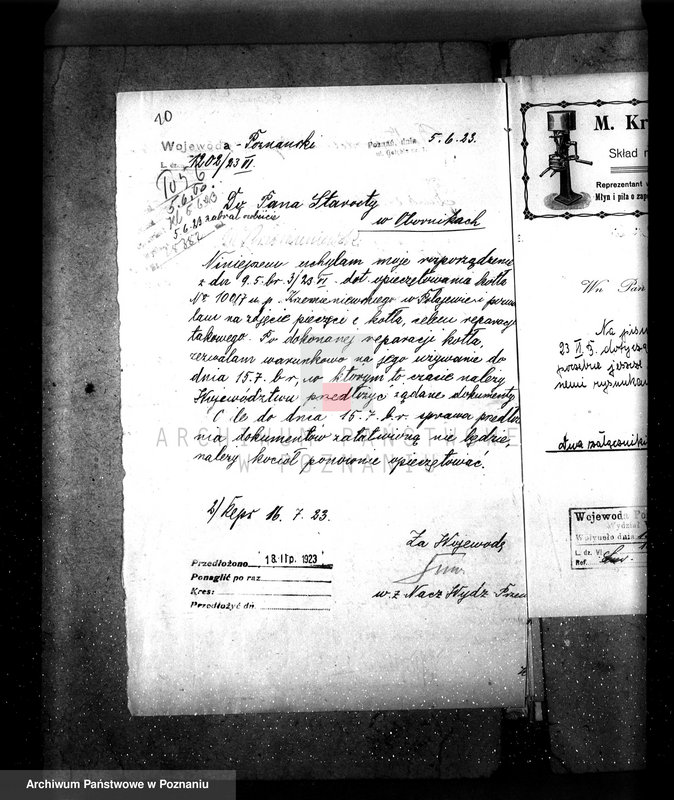 10
Wojewoda Poznanski
Poznań, dnia 5.6.23.
L. dz. 1202/23 VI.
5.6.23 zabrał
Do Pana Starosty
w Obornikach
Niniejszem uchylam moje rozporządzenie
z dn 9.5. br. 3/23 VI. dot. opieczętowania kotła
No u p. Krzemieniewskiego w Połajewie i
na zdjęcie pieczęci z kotła, celem reparacji
takowego. Po dokonanej reparacji kotła,
zezwalam warunkowo na jego używanie do
dnia 15.7. b.r., w którym to czasie należy
Województwu przedłożyć żądane dokumenty
O ile do dnia 15.7. b.r. sprawa przedło
nia dokumentów załatwioną nie będzie,
należy kocioł ponownie opieczętować.
2/ Repr 16. 7. 23.
Za Wojewodę
w. z Nacz Wydz Przem
Przedłożono 18. lip. 1923
Ponaglić po raz
Kres:
Przedłożyć dn.
M. Kr
Skład
Reprezentant
Młyn i piła o
Wn Pan
Na
23 VI
Dwa załączniki
Wojewoda Po
Wydział
Wpłynęło dnia
L. dz. VI
Ref.
ARCHIWUM PAŃSTWOWE
W POZNANIU
Archiwum Państwowe w Poznaniu